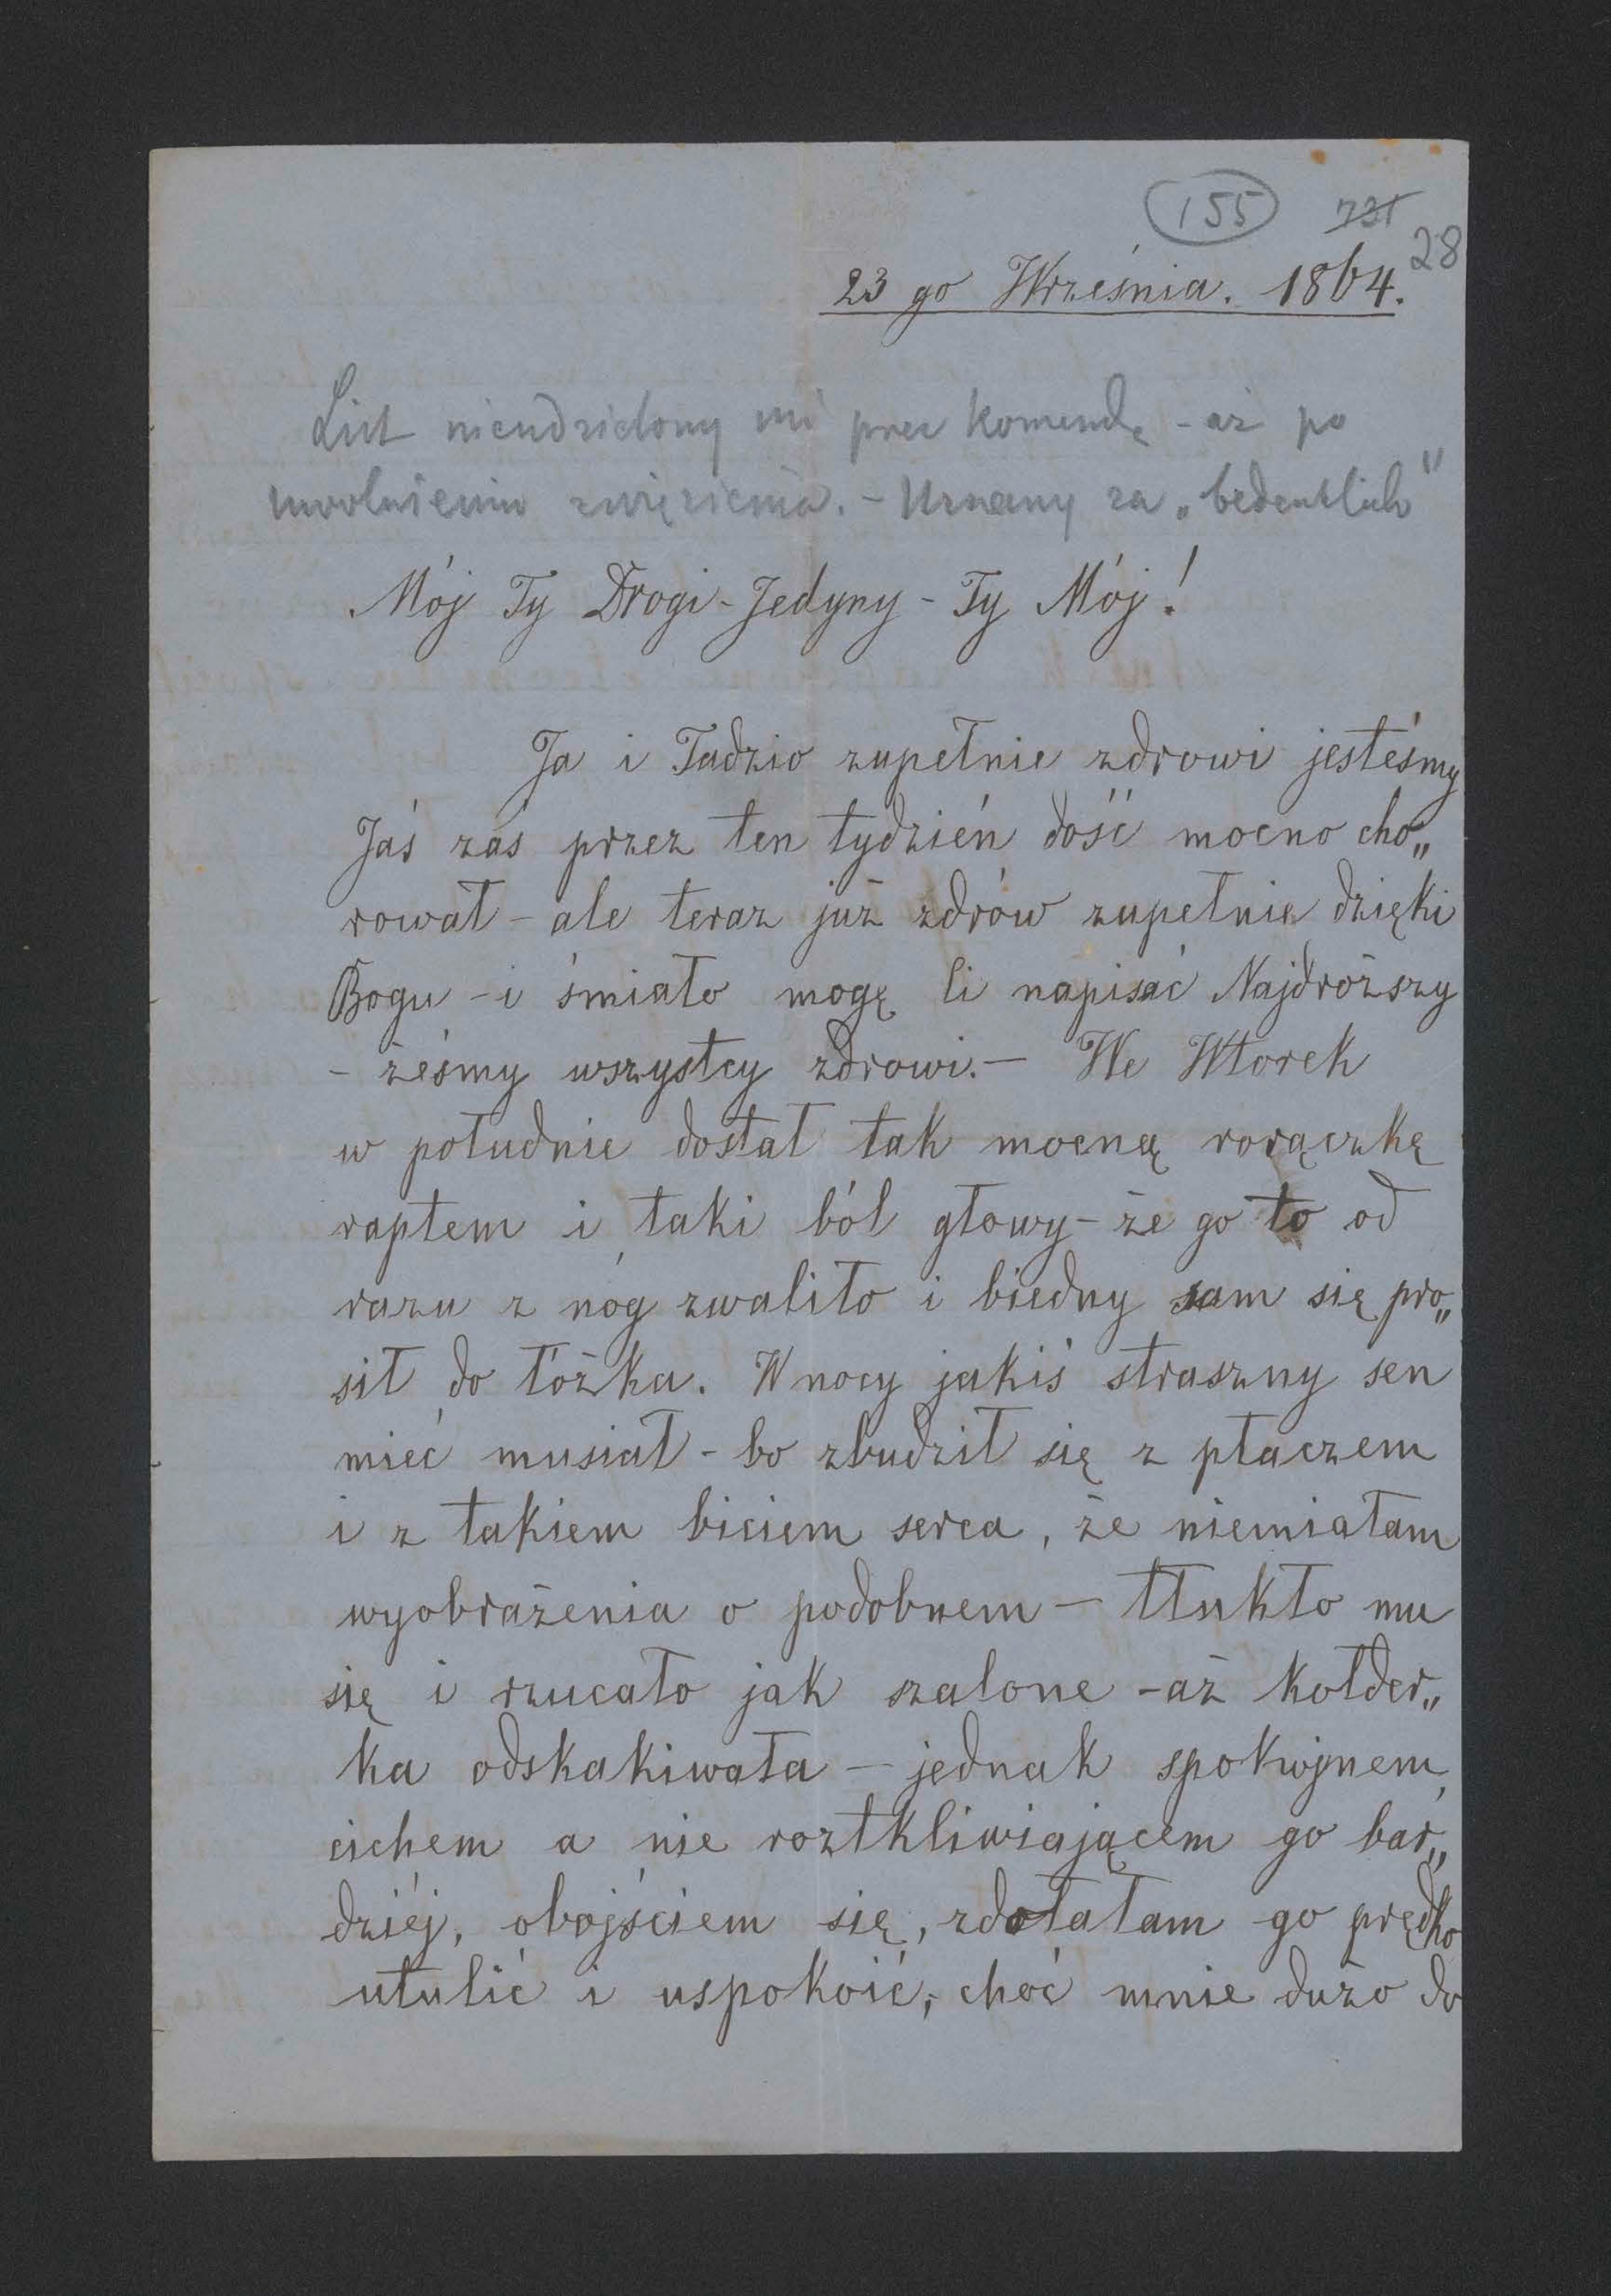 155 731
28
23 go Września. 1864.
List nieudzielony mi przez Komendę - aż po
uwolnieniu z więzienia. - Uznany za „bedenklich"
Mój Ty Drogi - Jedyny - Ty Mój!
Ja i Tadzio zupełnie zdrowi jesteśmy
Jaś zaś przez ten tydzień dość mocno cho„
rował - ale teraz już zdrów zupełnie dzięki
Bogu - i śmiało mogę Ci napisać Najdroższy
- żeśmy wszyscy zdrowi. - We Wtorek
w południe dostał tak mocną gorączkę
raptem i taki ból głowy - że go to od
razu z nóg zwaliło i biedny sam się pro„
sił do łóżka. W nocy jakiś straszny sen
mieć musiał - bo zbudził się z płaczem
i z takiem biciem serca, że niemiałam
wyobrażenia o podobnem - tłukło mu
się i rzucało jak szalone - aż kołder„
ka odskakiwała - jednak spokojnem,
cichem a nie roztkliwiającem go bar„
dziéj, obejściem się, zdołałam go prędko
utulić i uspokoić, choć mnie dużo do